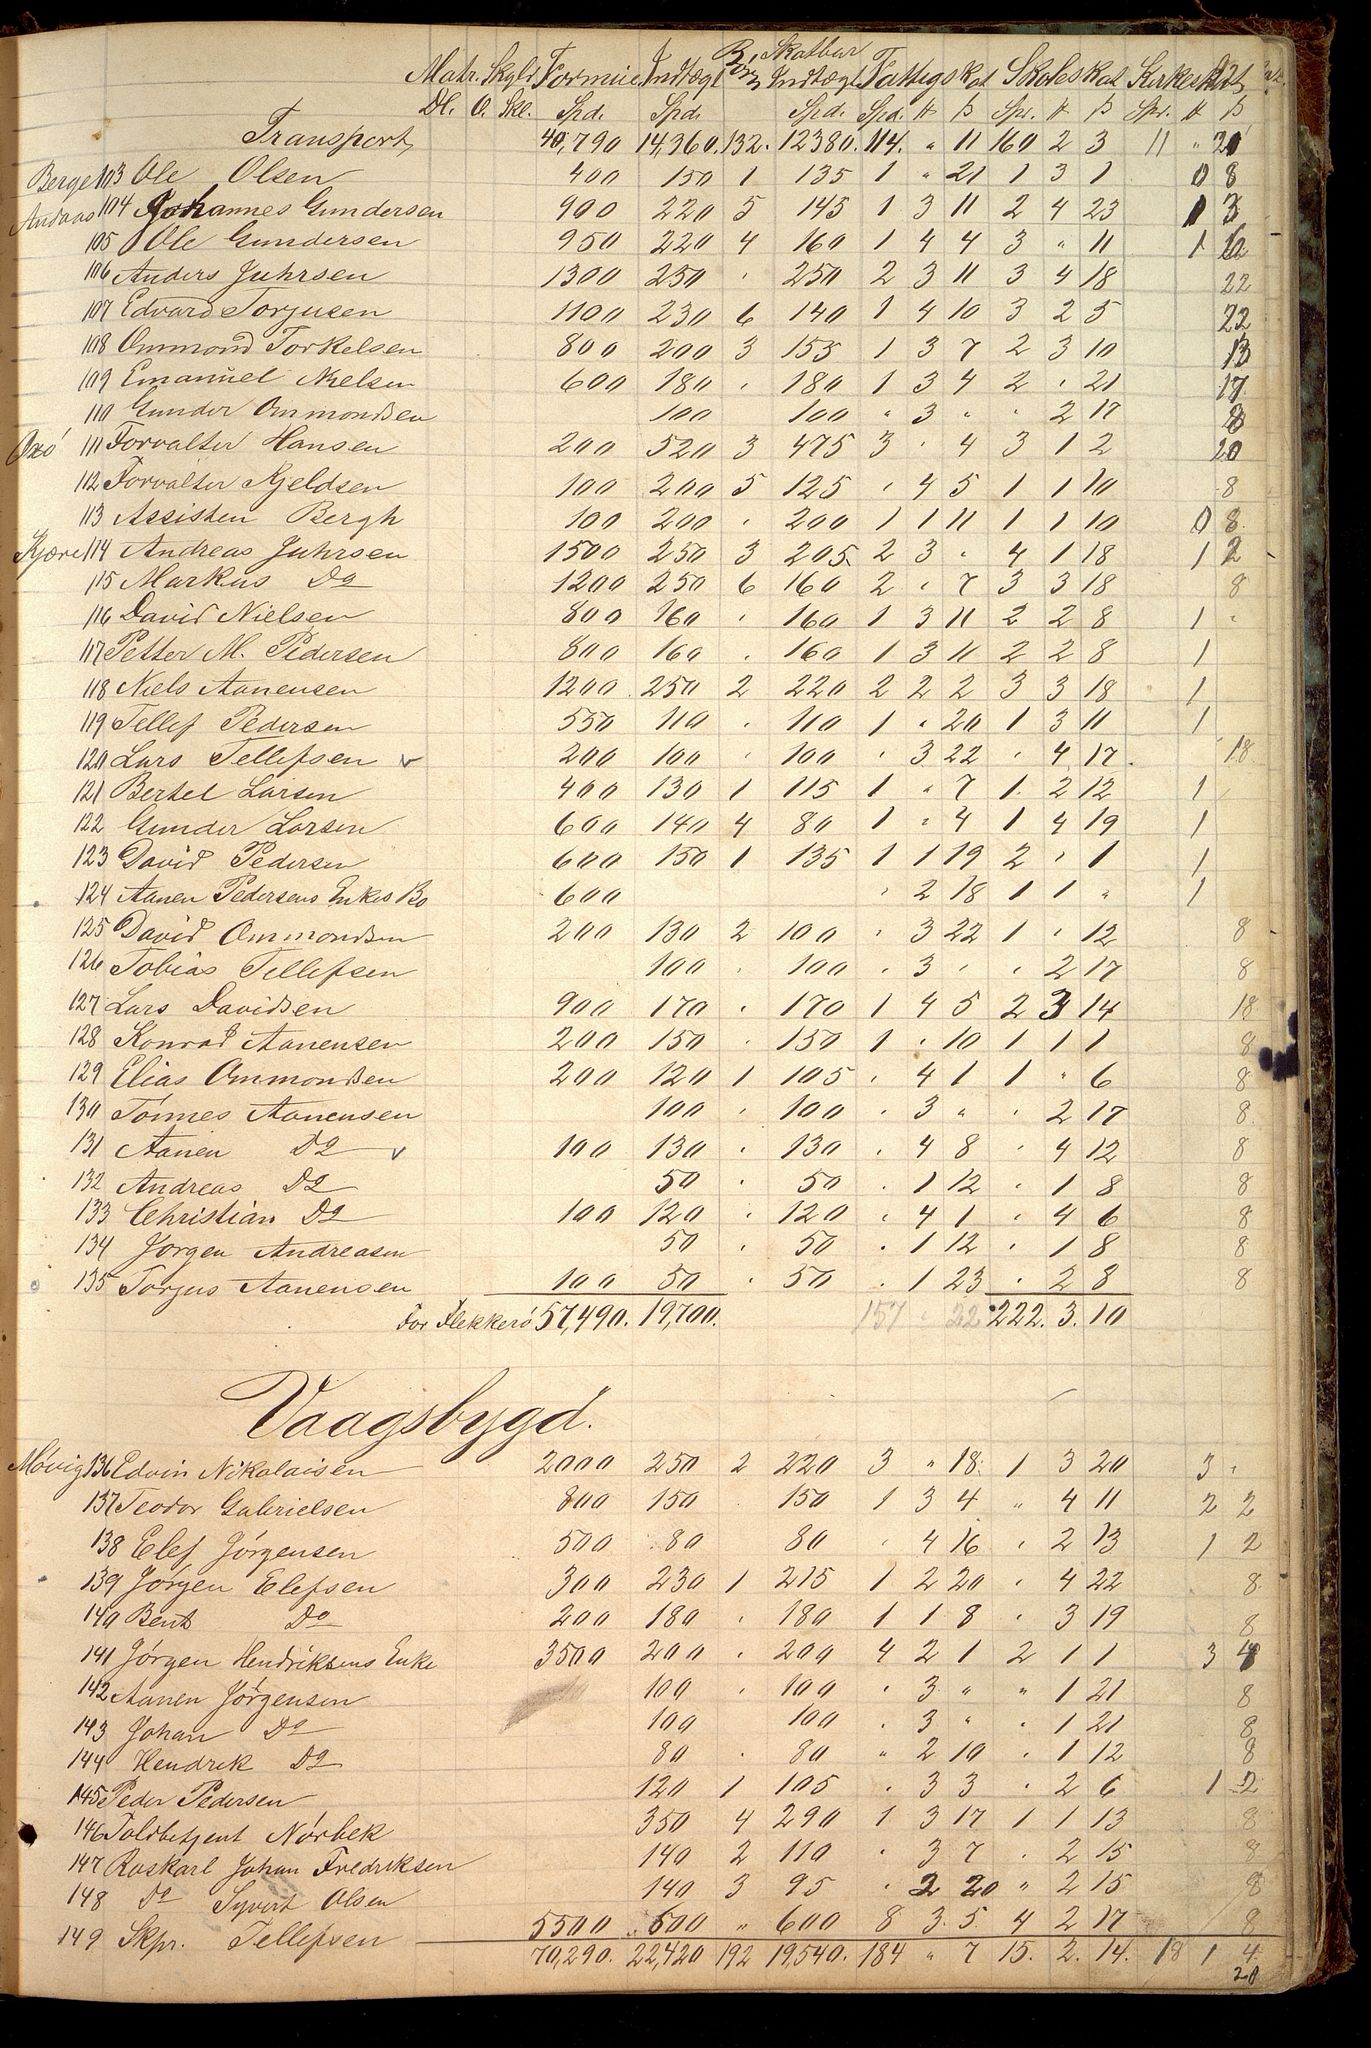 Matr. Skyld Formue Indtægt Børn Skatbar Indtægt Fattigskat Skoleskat Kirkeskat
Dl. O. Skl. Spd. Spd. Spd. Spd. # ß Spr. # ß Spr. # ß
Transport, 40,790 14,360. 132. 12380. 114. " 11 160 2 3 11 "
Berge 103 Ole Olsen 400 150 1 135 1 " 21 1 3 1 0 8
Andaas 104 Johannes Gundersen 900 220 5 145 1 3 11 2 4 23 1 3
105 Ole Gundersen 950 220 4 160 1 4 4 3 " 11 1
106 Anders Juhrsen 1300 250 " 250 2 3 11 3 4 18 22
107 Edvard Torjusen 1100 230 6 140 1 4 10 3 2 5 22
108 Ommond Torkelsen 800 200 3 155 1 3 7 2 3 10 13
109 Emanuel Nielsen 600 180 " 180 1 3 4 2 " 21 17
110 Gunder Ommondsen 100 100 " 3 " " 2 17 8
Oxö 111 Forvalter Hansen 200 520 3 475 3 " 4 3 1 2 20
112 Forvalter Kjeldsen 100 200 5 125 " 4 5 1 1 10 8
113 Assisten Bergh 100 200 " 200 1 1 11 1 1 10 0 8
Kjære 114 Andreas Juhrsen 1500 250 3 205 2 3 " 4 1 18 1 2
115 Markus Do 1200 250 6 160 2 " 7 3 3 18 8
116 David Nielsen 800 160 " 160 1 3 11 2 2 8 1 "
117 Petter M. Pedersen 800 160 " 160 1 3 11 2 2 8 1
118 Niels Aanensen 1200 250 2 220 2 2 2 3 3 18 1
119 Tellef Pedersen 550 110 " 110 1 " 20 1 3 11 1
120 Lars Tellefsen v 200 100 " 100 " 3 22 " 4 17 18
121 Bertel Larsen 400 130 1 115 1 " 7 1 2 12 1
122 Gunder Larsen 600 140 4 80 1 " 4 1 4 19 1
123 David Pedersen 600 150 1 135 1 1 19 2 " 1 1
124 Aanen Pedersens Enkes Bo 600 " 2 18 1 1 " 1
125 David Ommondsen 200 130 2 100 " 3 22 1 " 12 8
126 Tobias Tellefsen 100 " 100 " 3 " " 2 17 8
127 Lars Davidsen 900 170 " 170 1 4 5 2 3 14 18
128 Konrad Aanensen 200 150 " 150 1 " 10 1 1 1 8
129 Elias Ommondsen 200 120 1 105 " 4 1 1 " 6 8
130 Tönnes Aanensen 100 " 100 " 3 " " 2 17 8
131 Aanen Do v 100 130 " 130 " 4 8 " 4 12 8
132 Andreas Do 50 " 50 " 1 12 " 1 8 8
133 Christian Do 100 120 " 120 " 4 1 " 4 6 8
134 Jorgen Andreasen 50 " 50 " 1 12 " 1 8 8
135 Torjus Aanensen 100 50 " 50 " 1 23 " 2 8 8
For Flekkerö 57,490. 19,700. 157 " 22 222. 3. 10
Vaagsbygd.
Møvig 136 Edvin Nikolaisen 2000 250 2 220 3 " 18 1 3 20 3 "
137 Teodor Gabrielsen 800 150 150 1 3 4 " 4 11 2 2
138 Elef Jørgensen 500 80 80 " 4 16 " 2 13 1 2
139 Jørgen Elefsen 300 230 1 215 1 2 20 " 4 22 8
140 Bent Do 200 180 " 180 1 1 8 " 3 19 8
141 Jørgen Hendriksens Enke 3500 200 " 200 4 2 1 2 1 1 3 4
142 Aanen Jørgensen 100 " 100 " 3 " " 1 21 8
143 Johan Do 100 100 " 3 " " 1 21 8
144 Hendrek Do 80 " 80 " 2 10 " 1 12 8
145 Peder Pedersen 120 1 105 " 3 3 " 2 6 1 2
146 Toldbetjent Nørbek 350 4 290 1 3 17 1 1 13 8
147 Roskarl Johan Fredriksen 140 2 110 " 3 7 " 2 15 8
148 Do Syvert Olsen 140 3 95 " 2 20 " 2 15 8
149 Skpr. Tellefsen 5500 600 " 600 8 3 5 4 2 17 8
70,290. 22,420 192 19,540. 184 " 7 15. 2. 14. 18 1 4
20